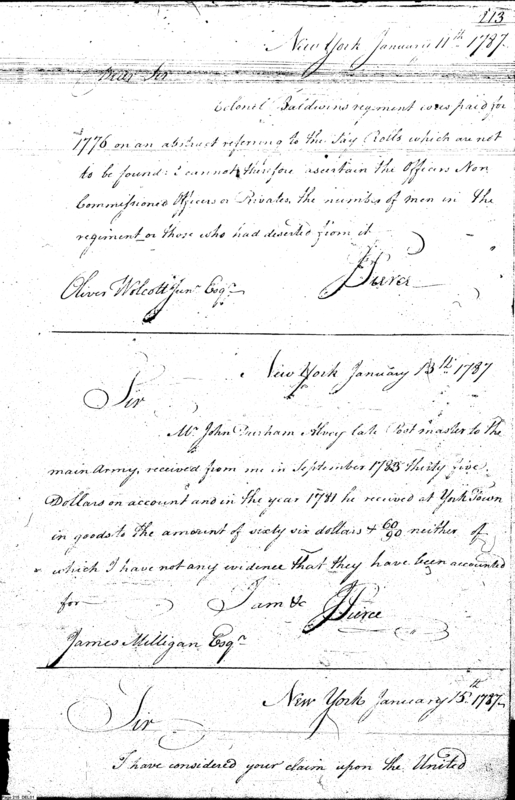 113
New York January 11th 1787.
Dear Sir
Colonel Baldwins regiment was paid for
1776 on an abstract referring to the Pay Rolls which are not
to be found: I cannot therefore ascertain the Officers Non
Commissioned Officers or Privates, the number of men in the
regiment or those who had deserted from it
J Pierce
Oliver Wolcott Junr Esqr
New York January 13th 1787
Sir
Mr John Durham Alvey late Post master to the
main Army, received from me in September 1783 thirty five
Dollars on account and in the year 1781 he received at York Town
in goods to the amount of sixty six dollars & 60/90 neither of
which I have not any evidence that they have been accounted
for
I am &c J Pierce
James Milligan Esqr
New York January 15th 1787.
Sir
I have considered your claim upon the United